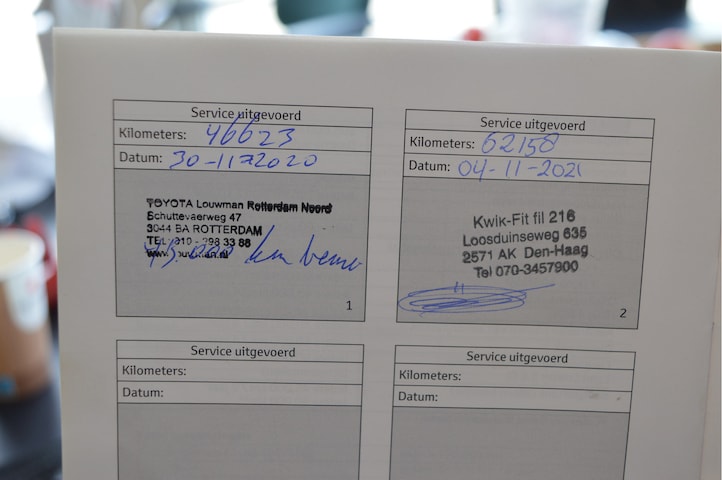 Service uitgevoerd
Kilometers: 46623
Datum: 30-11-2020
TOYOTA Louwman Rotterdam Noord
Schuttevaerweg 47
3044 BA ROTTERDAM
TEL. 010 - 298 33 88
www.louwman.nl
45.000 km beurt
1
Service uitgevoerd
Kilometers: 62158
Datum: 04-11-2021
Kwik-Fit fil 216
Loosduinseweg 635
2571 AK Den-Haag
Tel 070-3457900
2
Service uitgevoerd
Kilometers:
Datum:
Service uitgevoerd
Kilometers:
Datum: